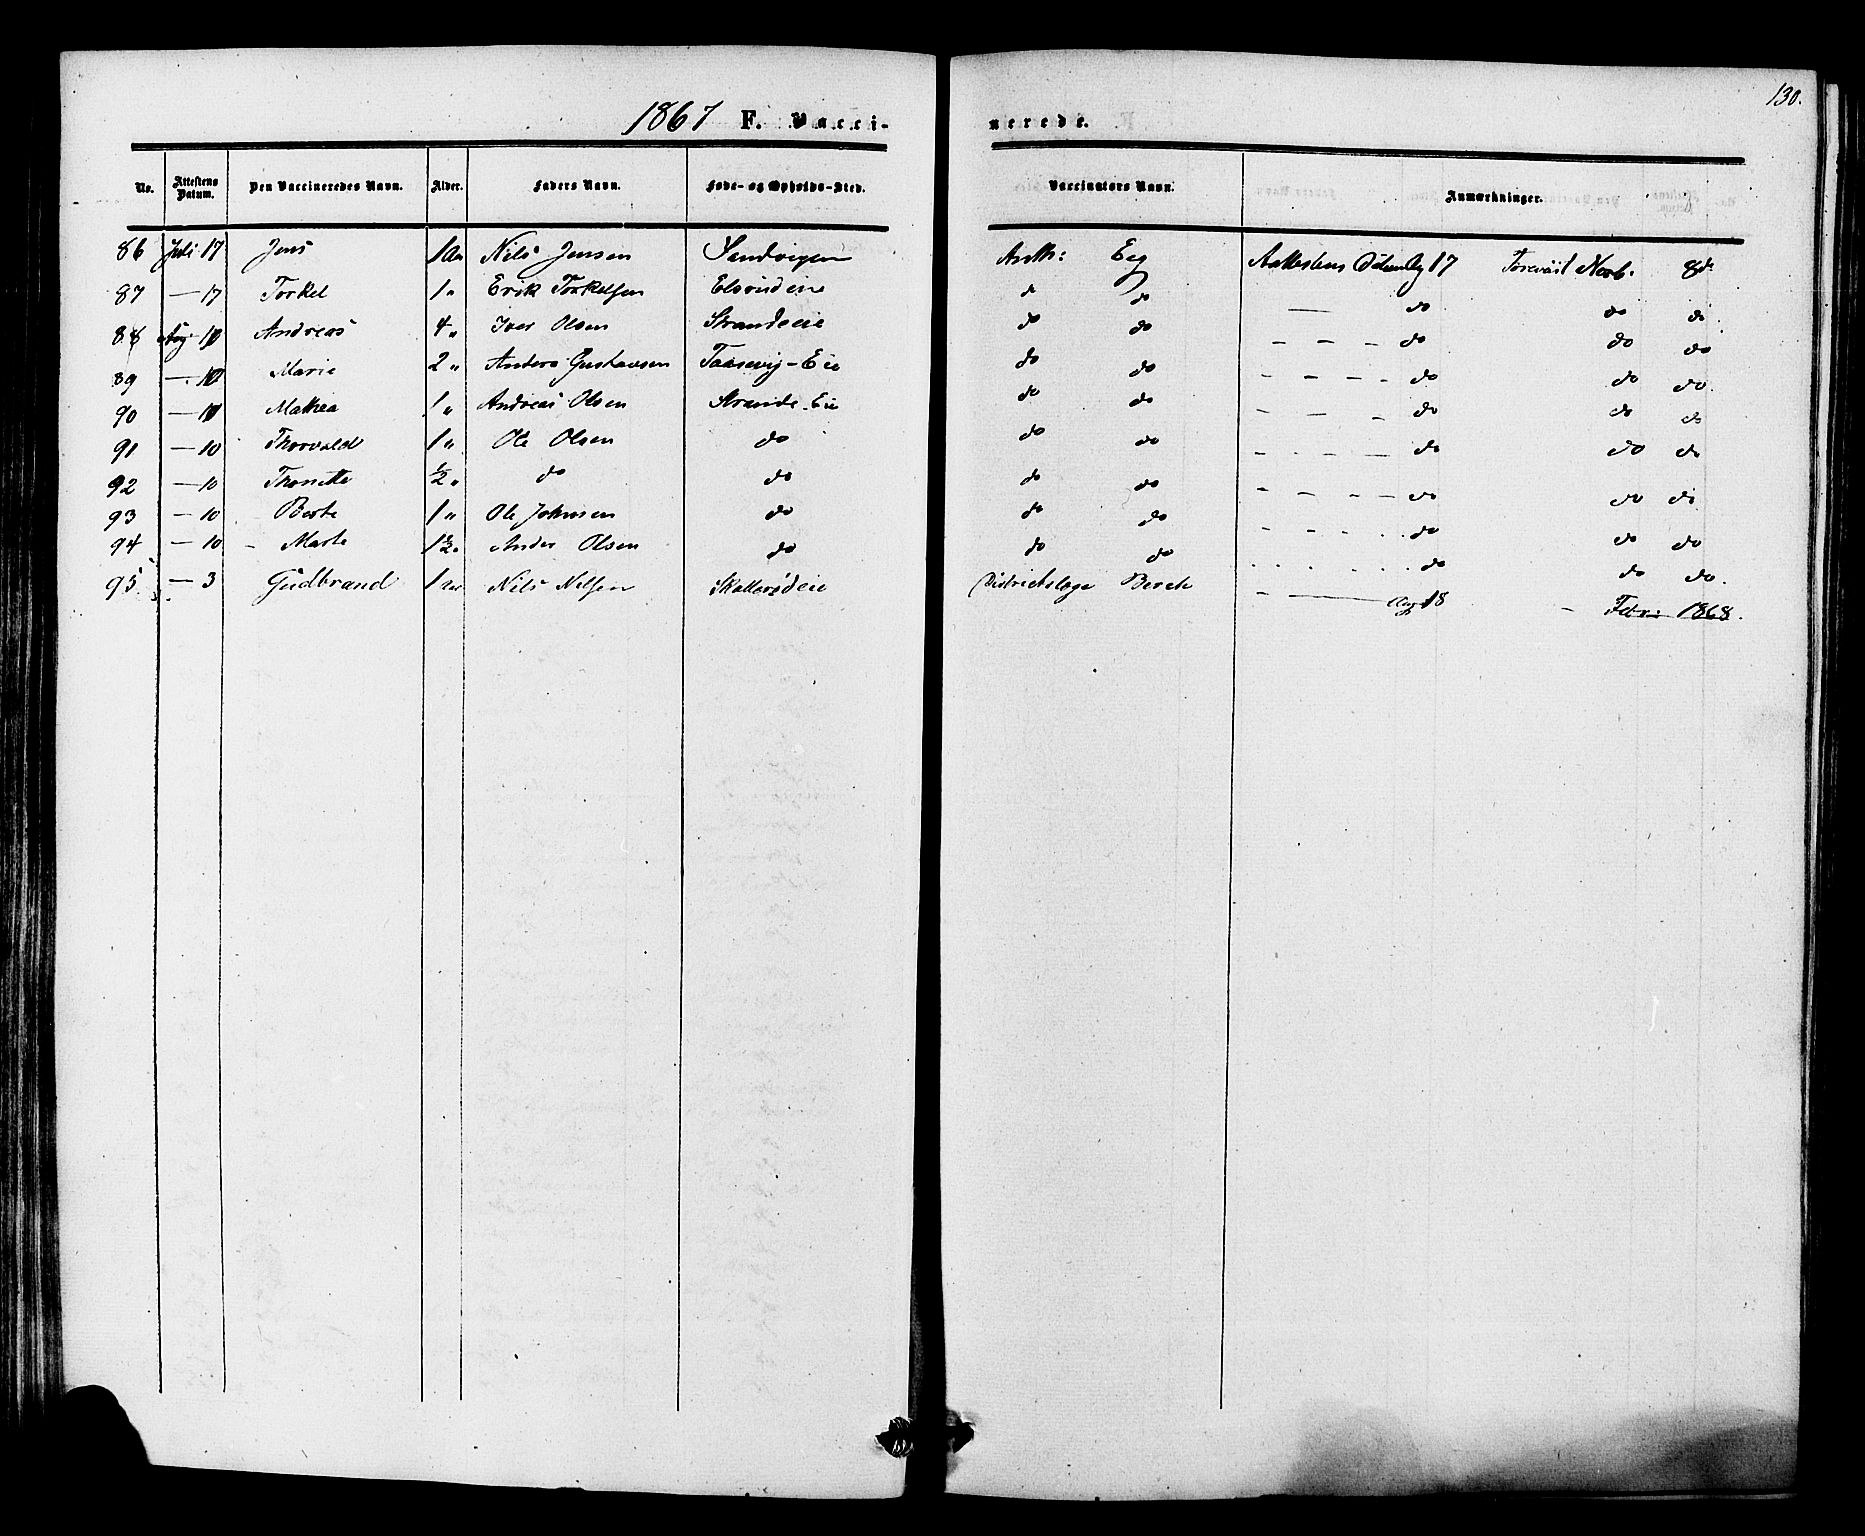 130.
1867 F. Vacci-nerede.
No. Attestens Datum. Den Vaccineredes Navn. Alder. Faders Navn. Føde- og Opholds-Sted. Vaccinators Navn. Anmærkninger.
86 Juli 17 Jens 1 Nils Jensen Sandvigen Anth: Eeg 17 8
87 — 17 Torkel 1 " Erik Torkelsen do do — do do do
88 Aug 10 Andreas 4 " Iver Olsen Strandeie do do — — — do do do
89 — 10 Marie 2 " Anders Gustavsen Taasevig-Eie do do — — — do do do.
90 — 10 Mathea 1 " Andreas Olsen Strande Eie do do — — — do do do
91 — 10 Thorvald 1 " Ole Olsen do do do — — — do do do
92 — 10 Thonette ½ " do do do do — — — do do do
93 — 10 Berte 1 " Ole Johnsen do do do — — — do do do
94 — 10 Marte 1½ " Anders Olsen do do do do do do.
95 — 3 Gudbrand 1 aar Nils Nilsen Skatterødeie Districtslæge Berch — — Aug 18 — Febr: 1868.